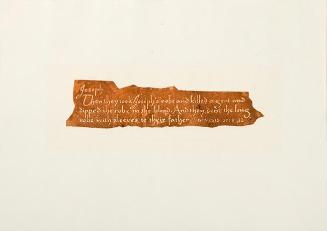 Joseph
Then they took Joseph's robe and killed a goat and
dipped the robe in the blood. And they sent the long
robe with sleeves to their father